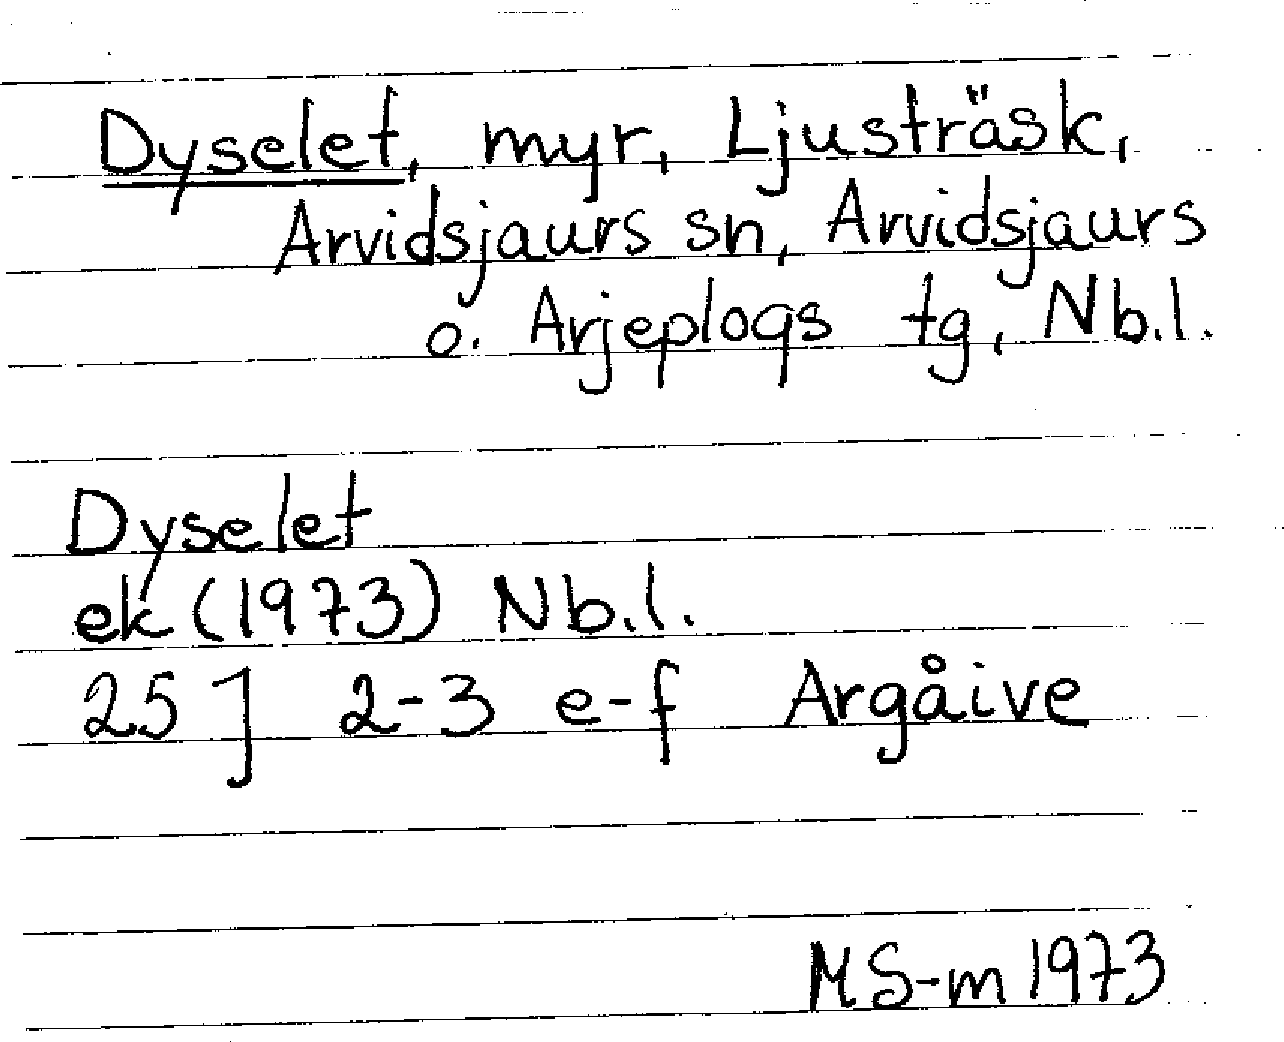 Dyselet, myr, Ljusträsk,
Arvidsjaurs sn, Arvidsjaurs
o. Arjeplogs tg, Nb.l.
Dyselet
ek (1973) Nb.l.
25 J 2-3 e-f Argåive
MS-m 1973